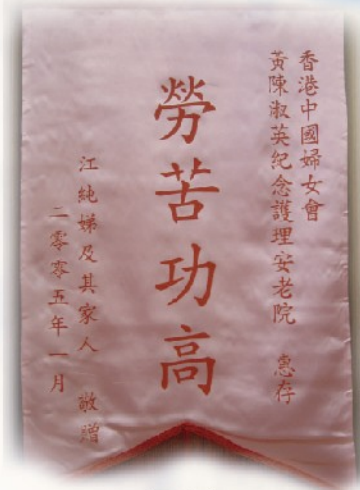 香港中國婦女會
黃陳淑英紀念護理安老院 惠存
勞苦功高
江純娣及其家人 敬贈
二零零五年一月